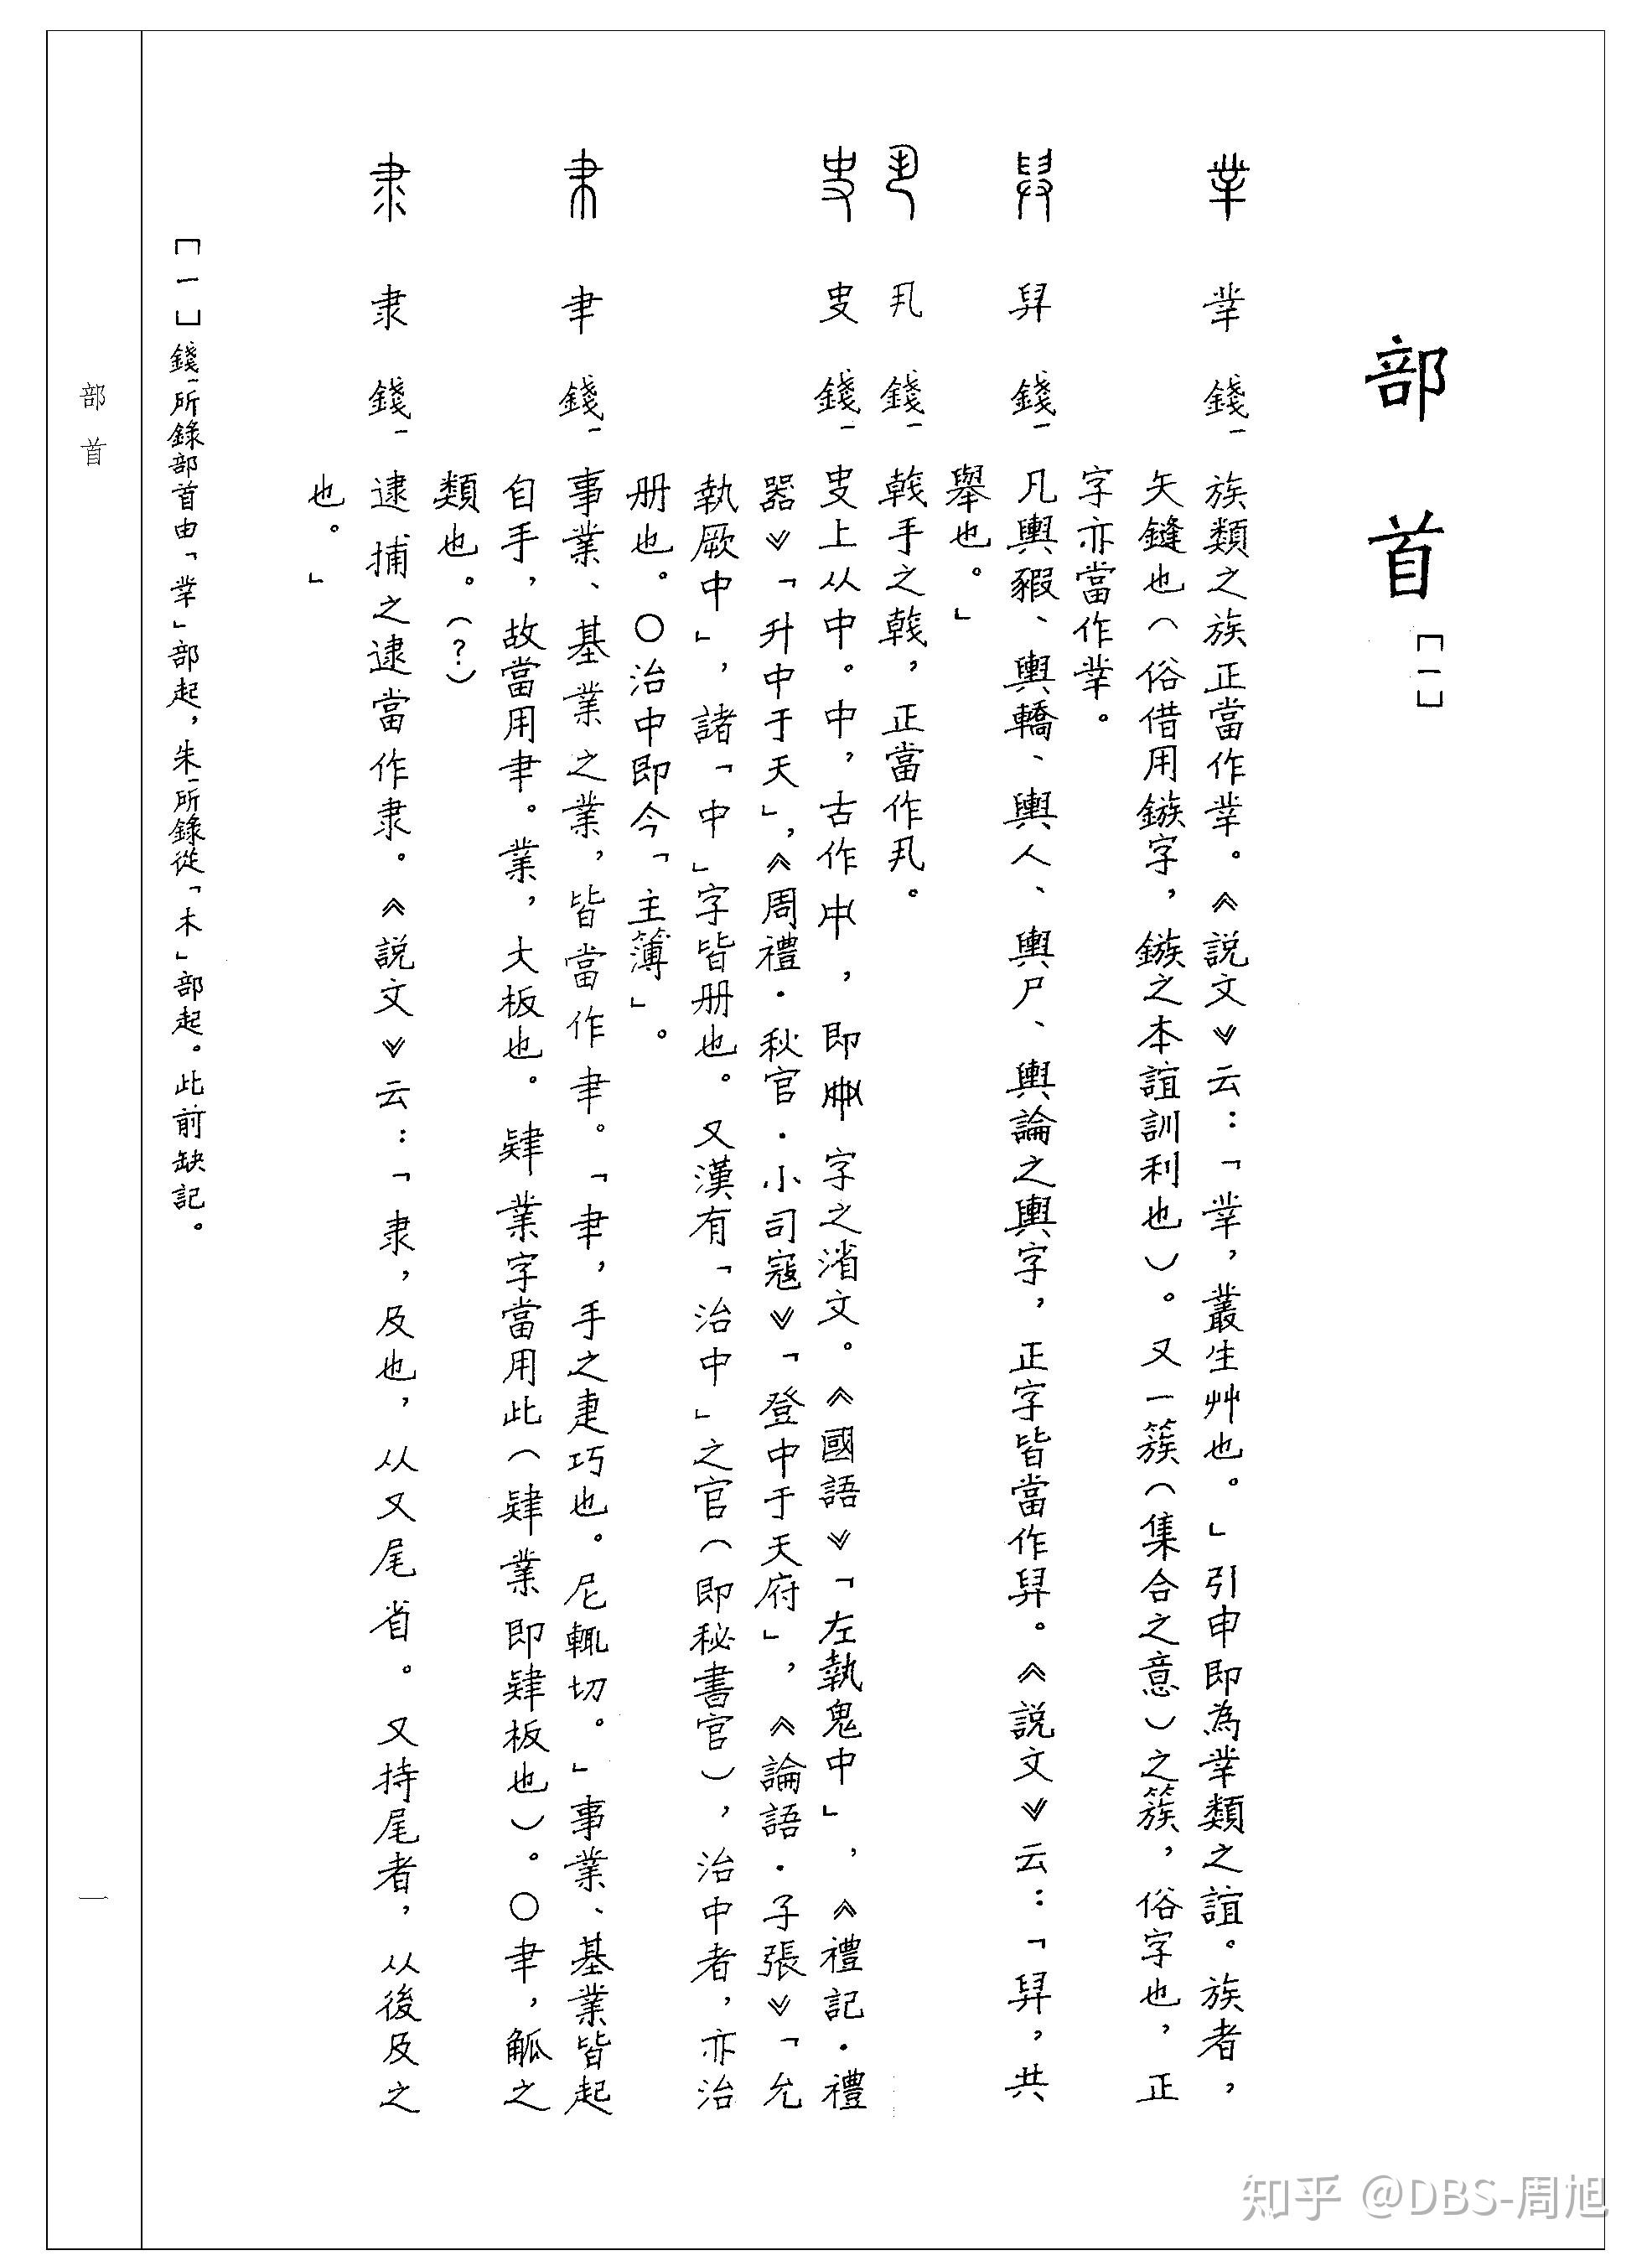 部首〔一〕
丵 丵 錢一 族類之族正當作丵。《説文》云：「丵，叢生艸也。」引申即為丵類之誼。族者，
矢鏠也（俗借用鏃字，鏃之本誼訓利也）。又一簇（集合之意）之簇，俗字也，正
字亦當作丵。
舁 舁 錢一 凡輿猳、輿轎、輿人、輿尸、輿論之輿字，正字皆當作舁。《説文》云：「舁，共
舉也。」
丮 丮 錢一 戟手之戟，正當作丮。
㕜 㕜 錢一 㕜上从中。中，古作，即字之渻文。《國語》「左執鬼中」，《禮記·禮
器》「升中于天」，《周禮·秋官·小司寇》「登中于天府」，《論語·子張》「允
執厥中」，諸「中」字皆册也。又漢有「治中」之官（即秘書官），治中者，亦治
册也。〇治中即今「主簿」。
𦘒 𦘒 錢一 事業、基業之業，皆當作𦘒。「𦘒，手之疌巧也。尼輒切。」事業、基業皆起
自手，故當用𦘒。業，大板也。肄業字當用此（肄業即肄板也）。〇𦘒，觚之
類也。（？）
隶 隶 錢一 逮捕之逮當作隶。《説文》云：「隶，及也，从又尾省。又持尾者，从後及之
也。」
〔一〕錢一所錄部首由「丵」部起，朱一所錄從「木」部起。此前缺記。
部首
一
知乎 @DBS-周旭